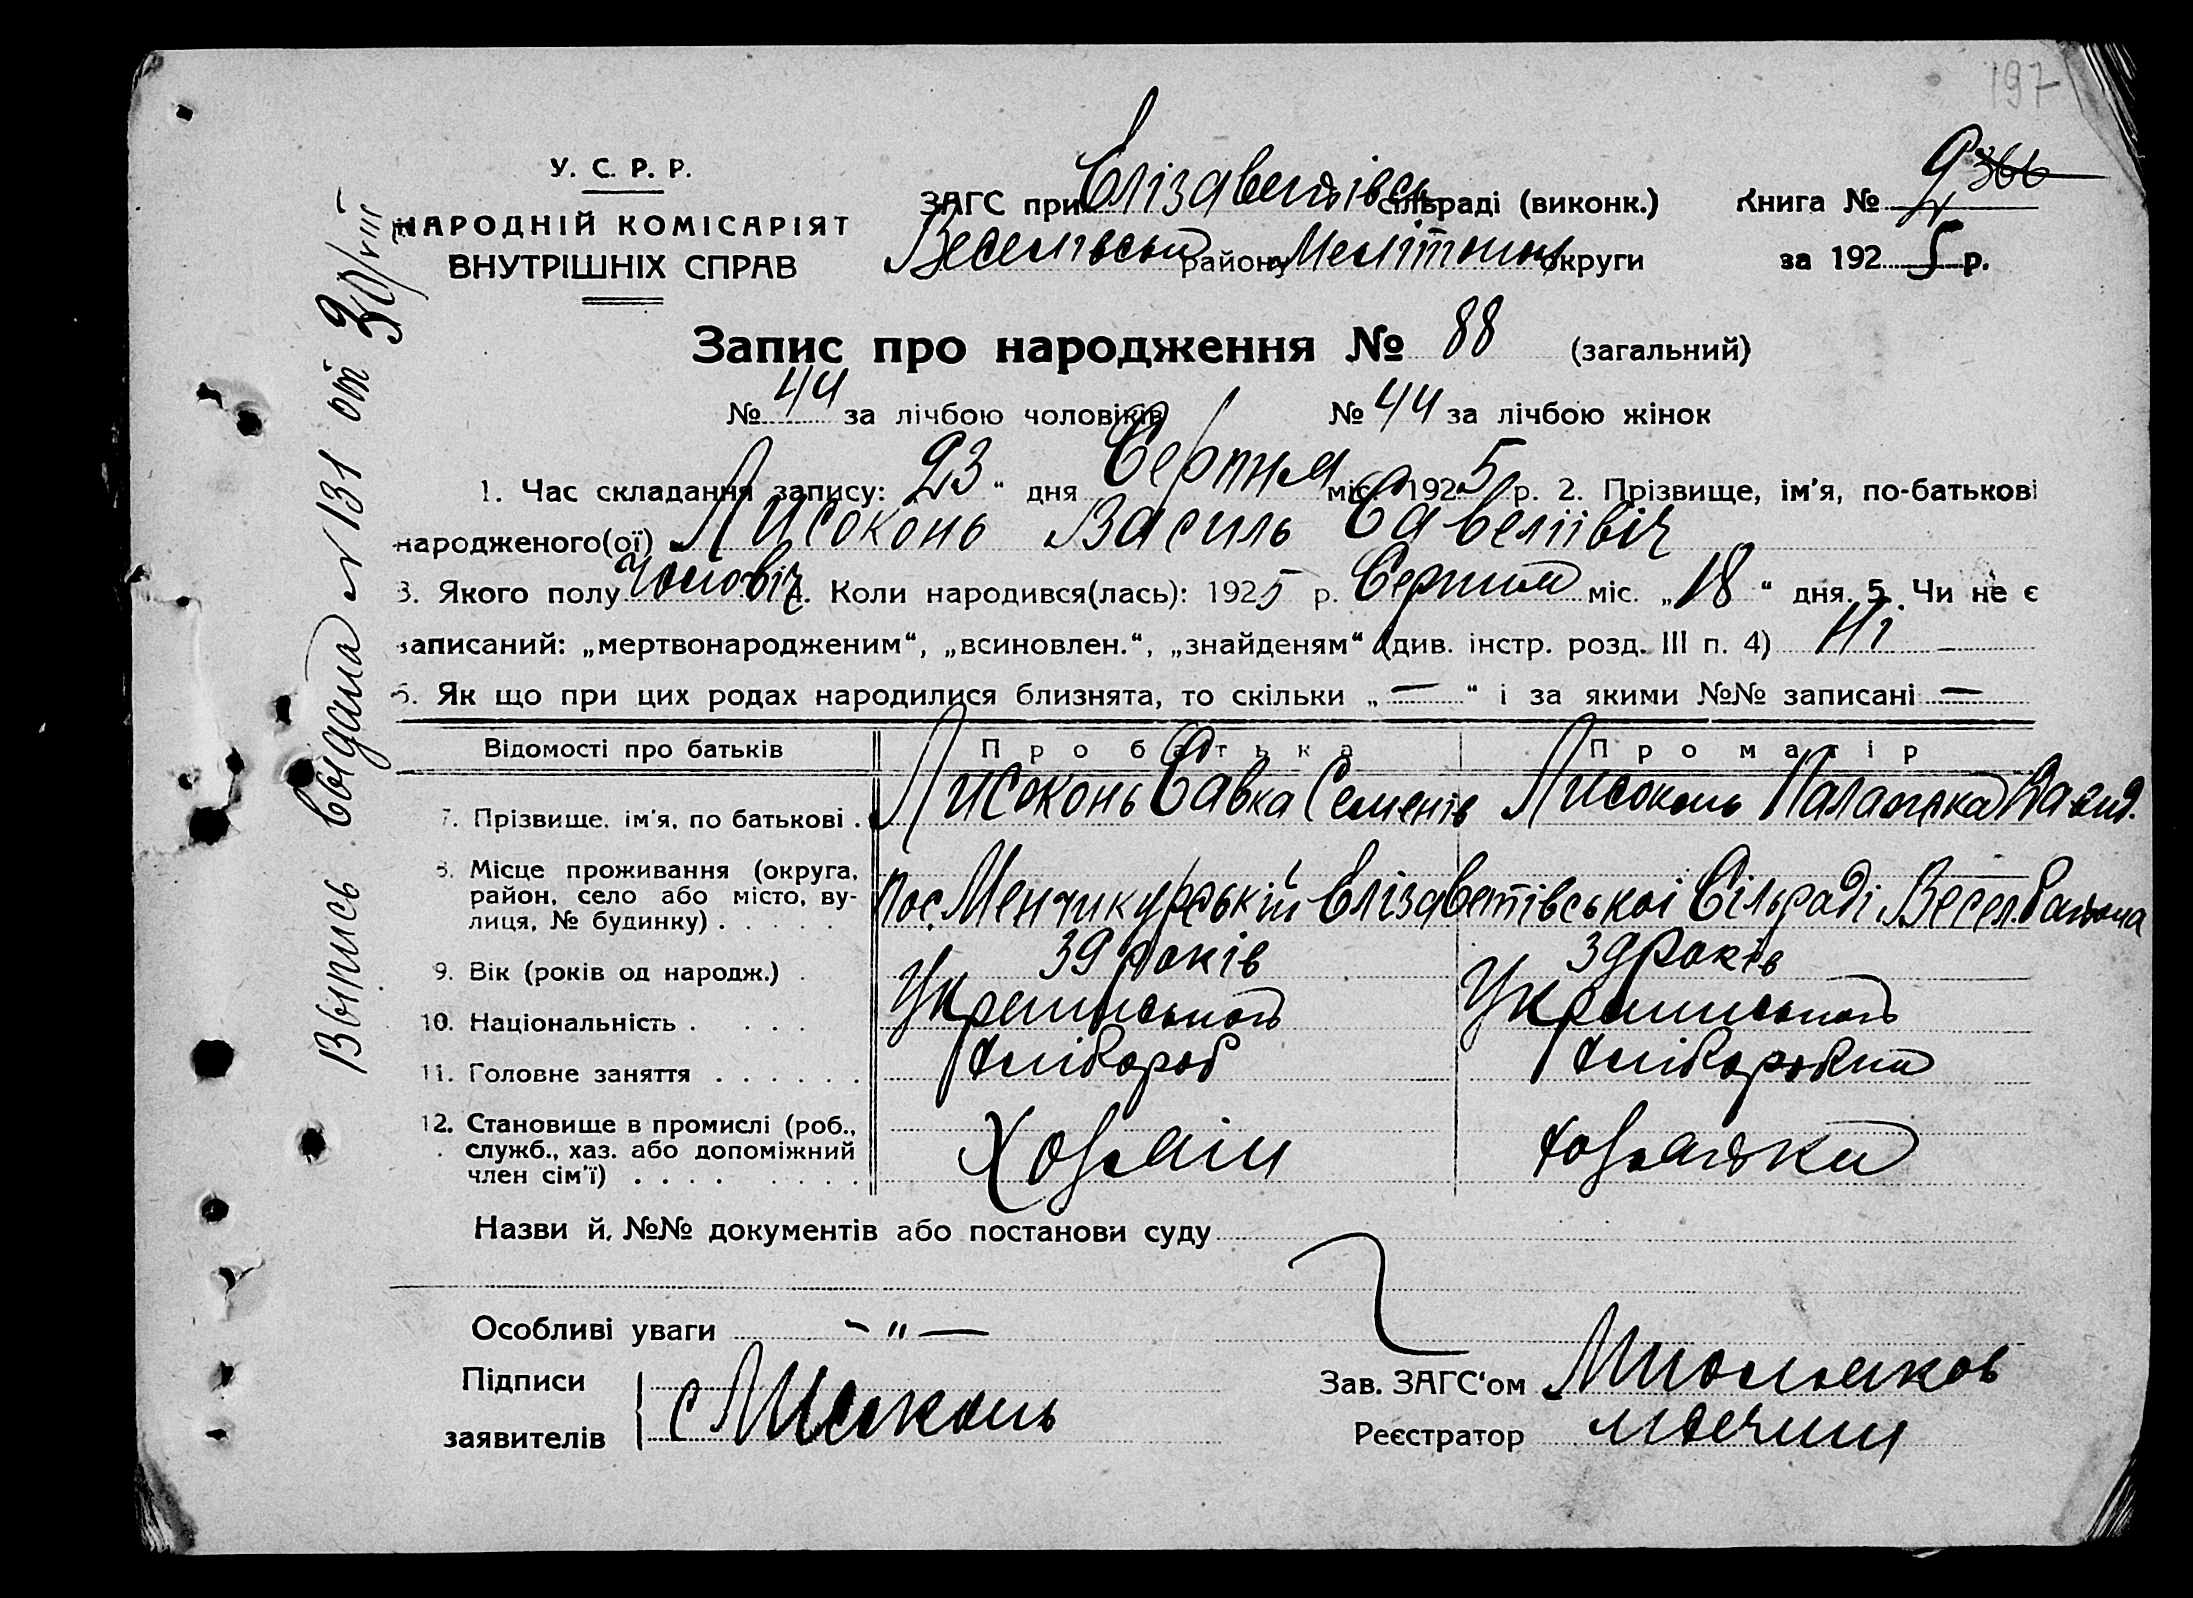 197
У. С. Р. Р.
НАРОДНІЙ КОМІСАРІЯТ
ВНУТРІШНІХ СПРАВ
ЗАГС при Єлізаветівськ сільраді (виконк.)
Веселівськ району Меліт округи
Книга № 9 366
за 1925 р.
Запис про народження № 88 (загальний)
№ 44 за лічбою чоловіків № 44 за лічбою жінок
1. Час складання запису: 23 " дня Серпня міс. 1925 р. 2. Прізвище, ім'я, по-батькові
народженого(ої) Лисоконь Василь Савеліівіч
3. Якого полу Чоловіч 4. Коли народився(лась): 1925 р. Серпня міс. „18 " дня. 5. Чи не є
записаний: „мертвонародженим“, „всиновлен.“, „знайденям“ (див. інстр. розд. III п. 4) Ні
6. Як що при цих родах народилися близнята, то скільки „ — " і за якими №№ записані —
Відомості про батьків Про батька Про матір
7. Прізвище, ім'я, по батькові . Лисоконь Савка Семенів Лисоконь Палажка
8. Місце проживання (округа,
район, село або місто, ву-
лиця, № будинку) . . . . . Пос. Менчикурській Єлізаветівської Сільраді Весел. Района
9. Вік (років од народж.) . 39 років 39 років
10. Національність . . . .
11. Головне заняття . . . . . . Хлібороб
12. Становище в промислі (роб.,
служб., хаз. або допоміжний
член сім'ї) . . . . . . . . Хозяін хозяйка
Назви й. №№ документів або постанови суду
Особливі уваги - " —
Підписи
заявителів С Лисоконь
Зав. ЗАГС'ом
Реєстратор
Выпись выдана N 131 от 30/VIII